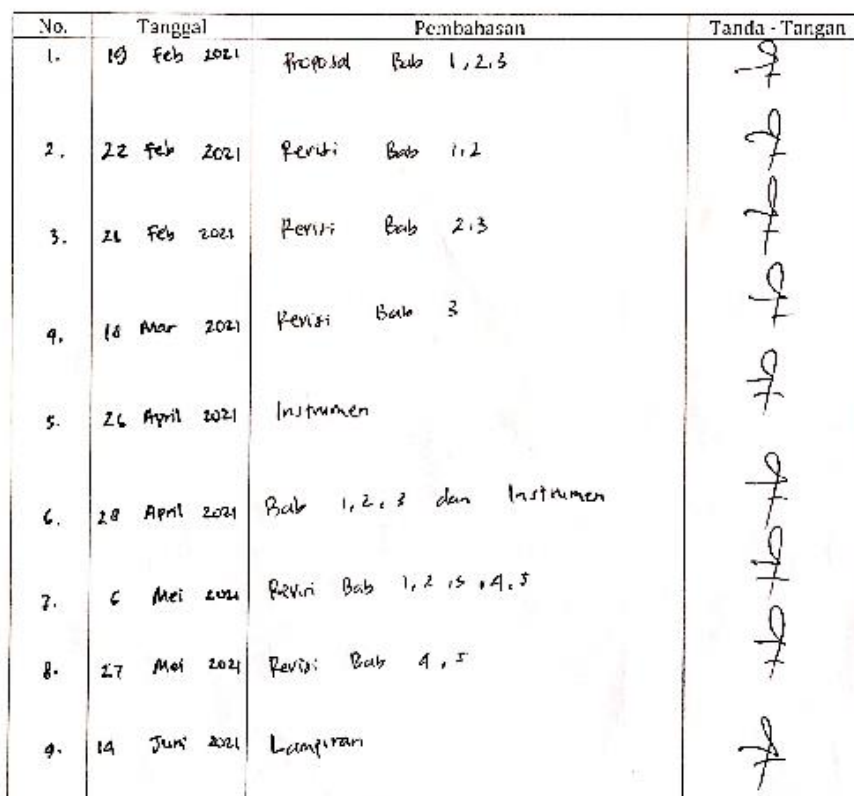 No. Tanggal Pembahasan Tanda - Tangan
1. 19 Feb 2021 Proposal Bab 1,2,3
2. 22 Feb 2021 Revisi Bab 1,2
3. 26 Feb 2021 Revisi Bab 2,3
4. 18 Mar 2021 Revisi Bab 3
5. 26 April 2021 Instrumen
6. 28 April 2021 Bab 1,2,3 dan Instrumen
7. 6 Mei 2021 Revisi Bab 1,2,3,4,5
8. 27 Mei 2021 Revisi Bab 4,5
9. 14 Juni 2021 Lampiran